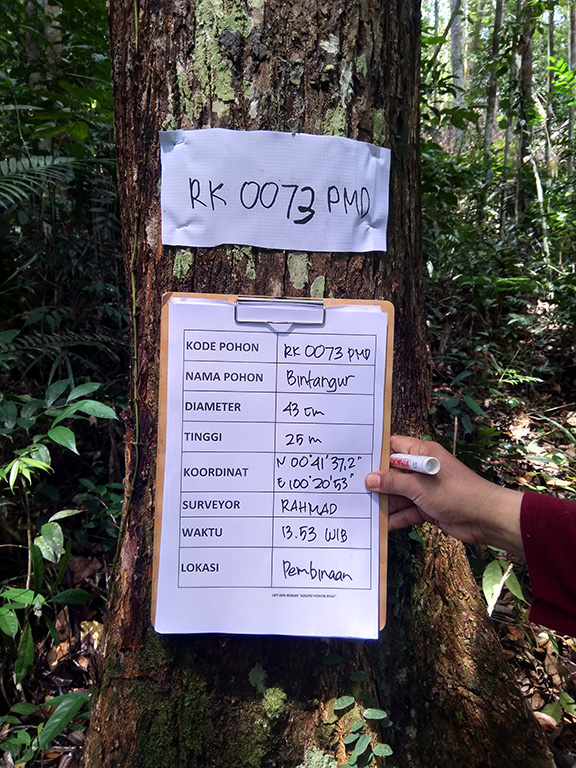 RK 0073 PMD
KODE POHON RK 0073 PMD
NAMA POHON Bintangur
DIAMETER 43 cm
TINGGI 25 m
KOORDINAT N 00°41'37,2"
E 100°20'53"
SURVEYOR RAHMAD
WAKTU 13.53 WIB
LOKASI Pembinaan